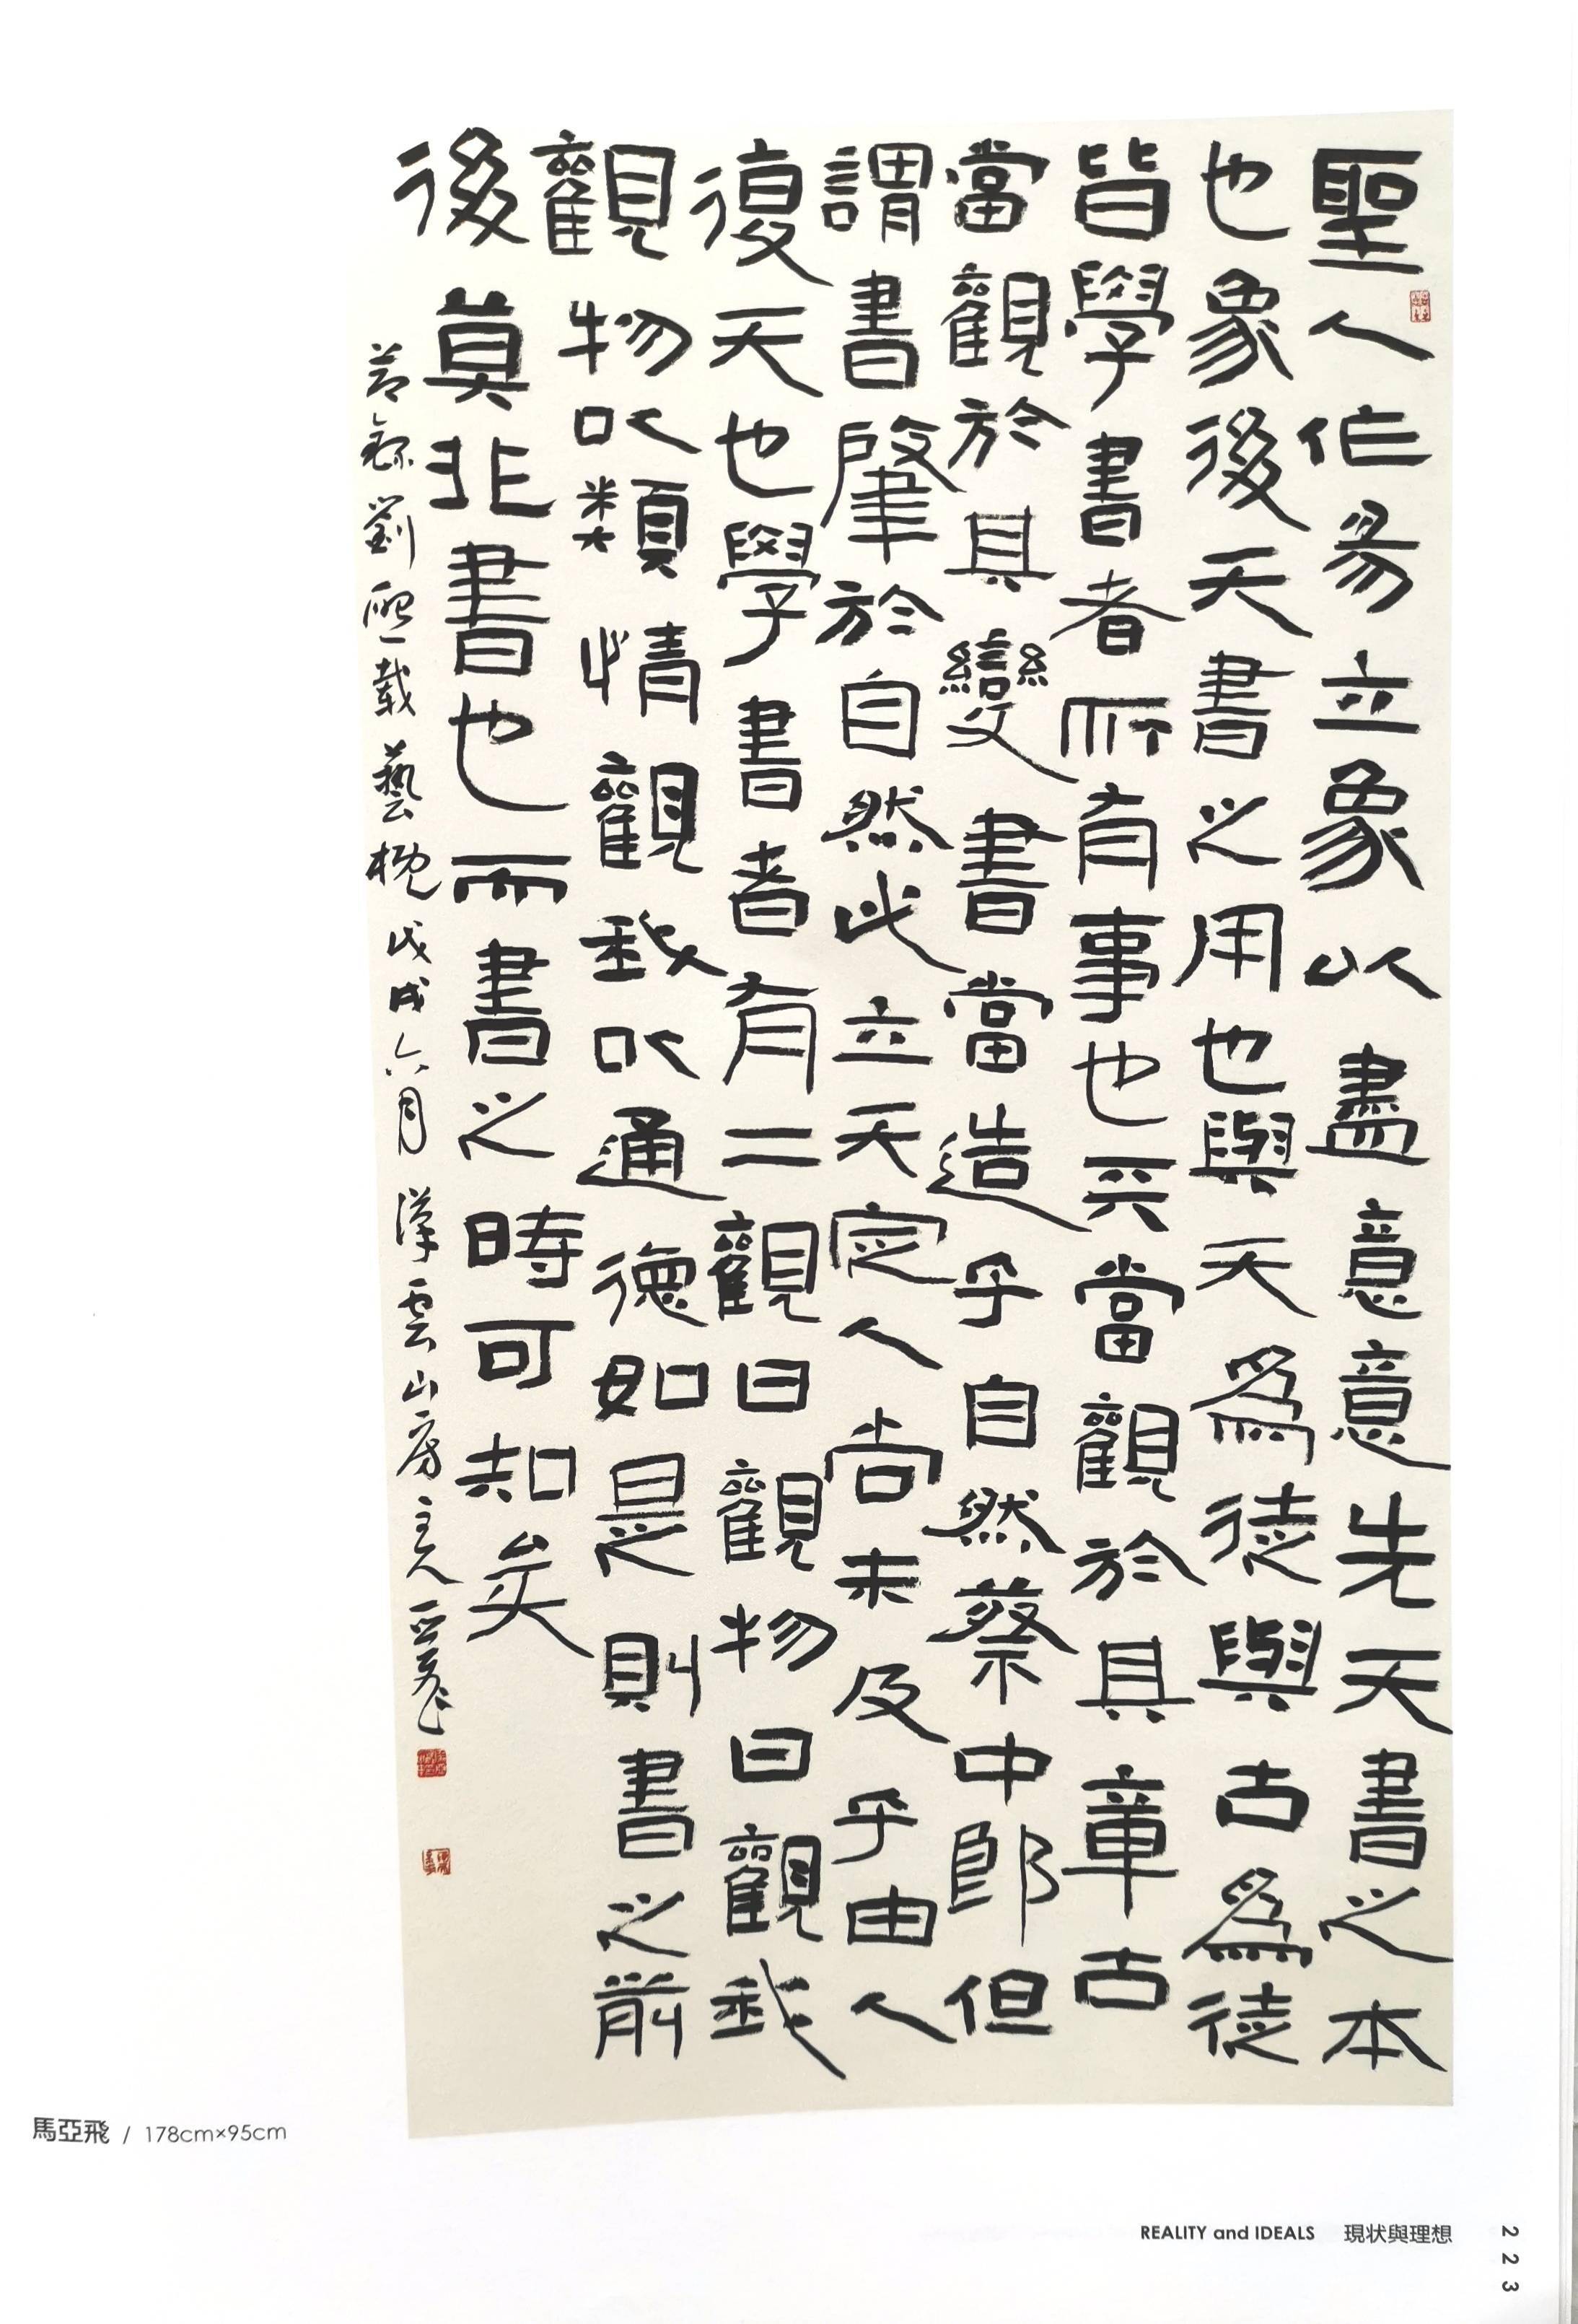 聖人作易立象以盡意意先天書之本
也象後天書之用也與天為徒與古為徒
皆學書者所有事也天當觀於其章古
當觀於其變書當造乎自然蔡中郎但
謂書肇於自然此立天定人尚未及乎由人
復天也學書者有二觀曰觀物曰觀我
觀物以類情觀我以通德如是則書之前
後莫非書也而書之時可知矣
節錄劉熙載藝概戊戌六月漢雲山房主人亞飛
馬亞飛 / 178cm×95cm
REALITY and IDEALS 現状與理想
223